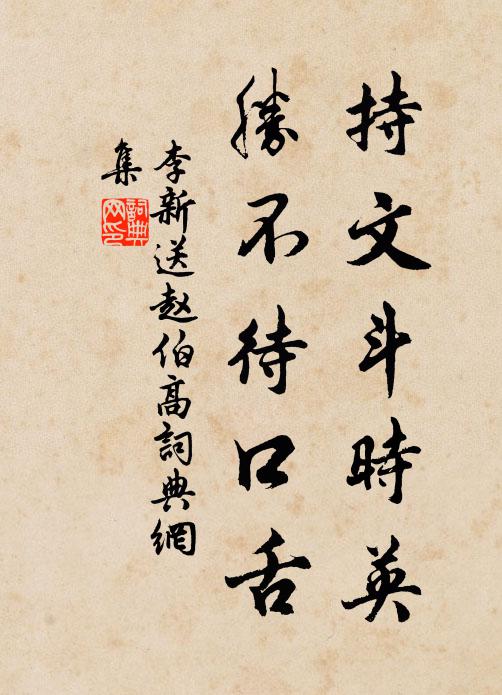 持文斗時英
勝不待口舌
李新送赵伯高詞典網
集
詞典
网印